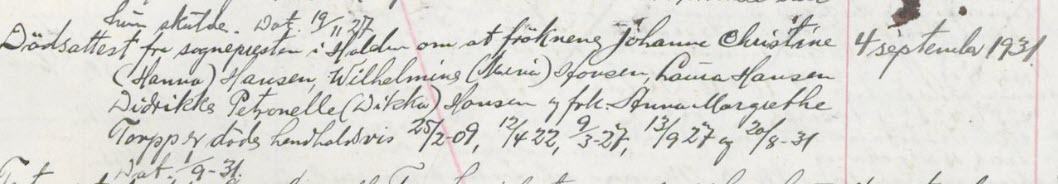 hun skulde. Dat. 19/11 27
Dödsattest fra sognepresten i Halden om at fröknene Johanne Christine 4 september 1931
(Hanna) Hansen, Wilhelmine (Maria) Hansen, Laura Hansen
Didrikke Petronelle (Dikka) Hansen og frk. Anna Margrethe
Torpp er döde henholdsvis 25/2-09, 12/4 22, 9/3-27, 13/9 27 og 20/8-31
Dat. 1/9-31.